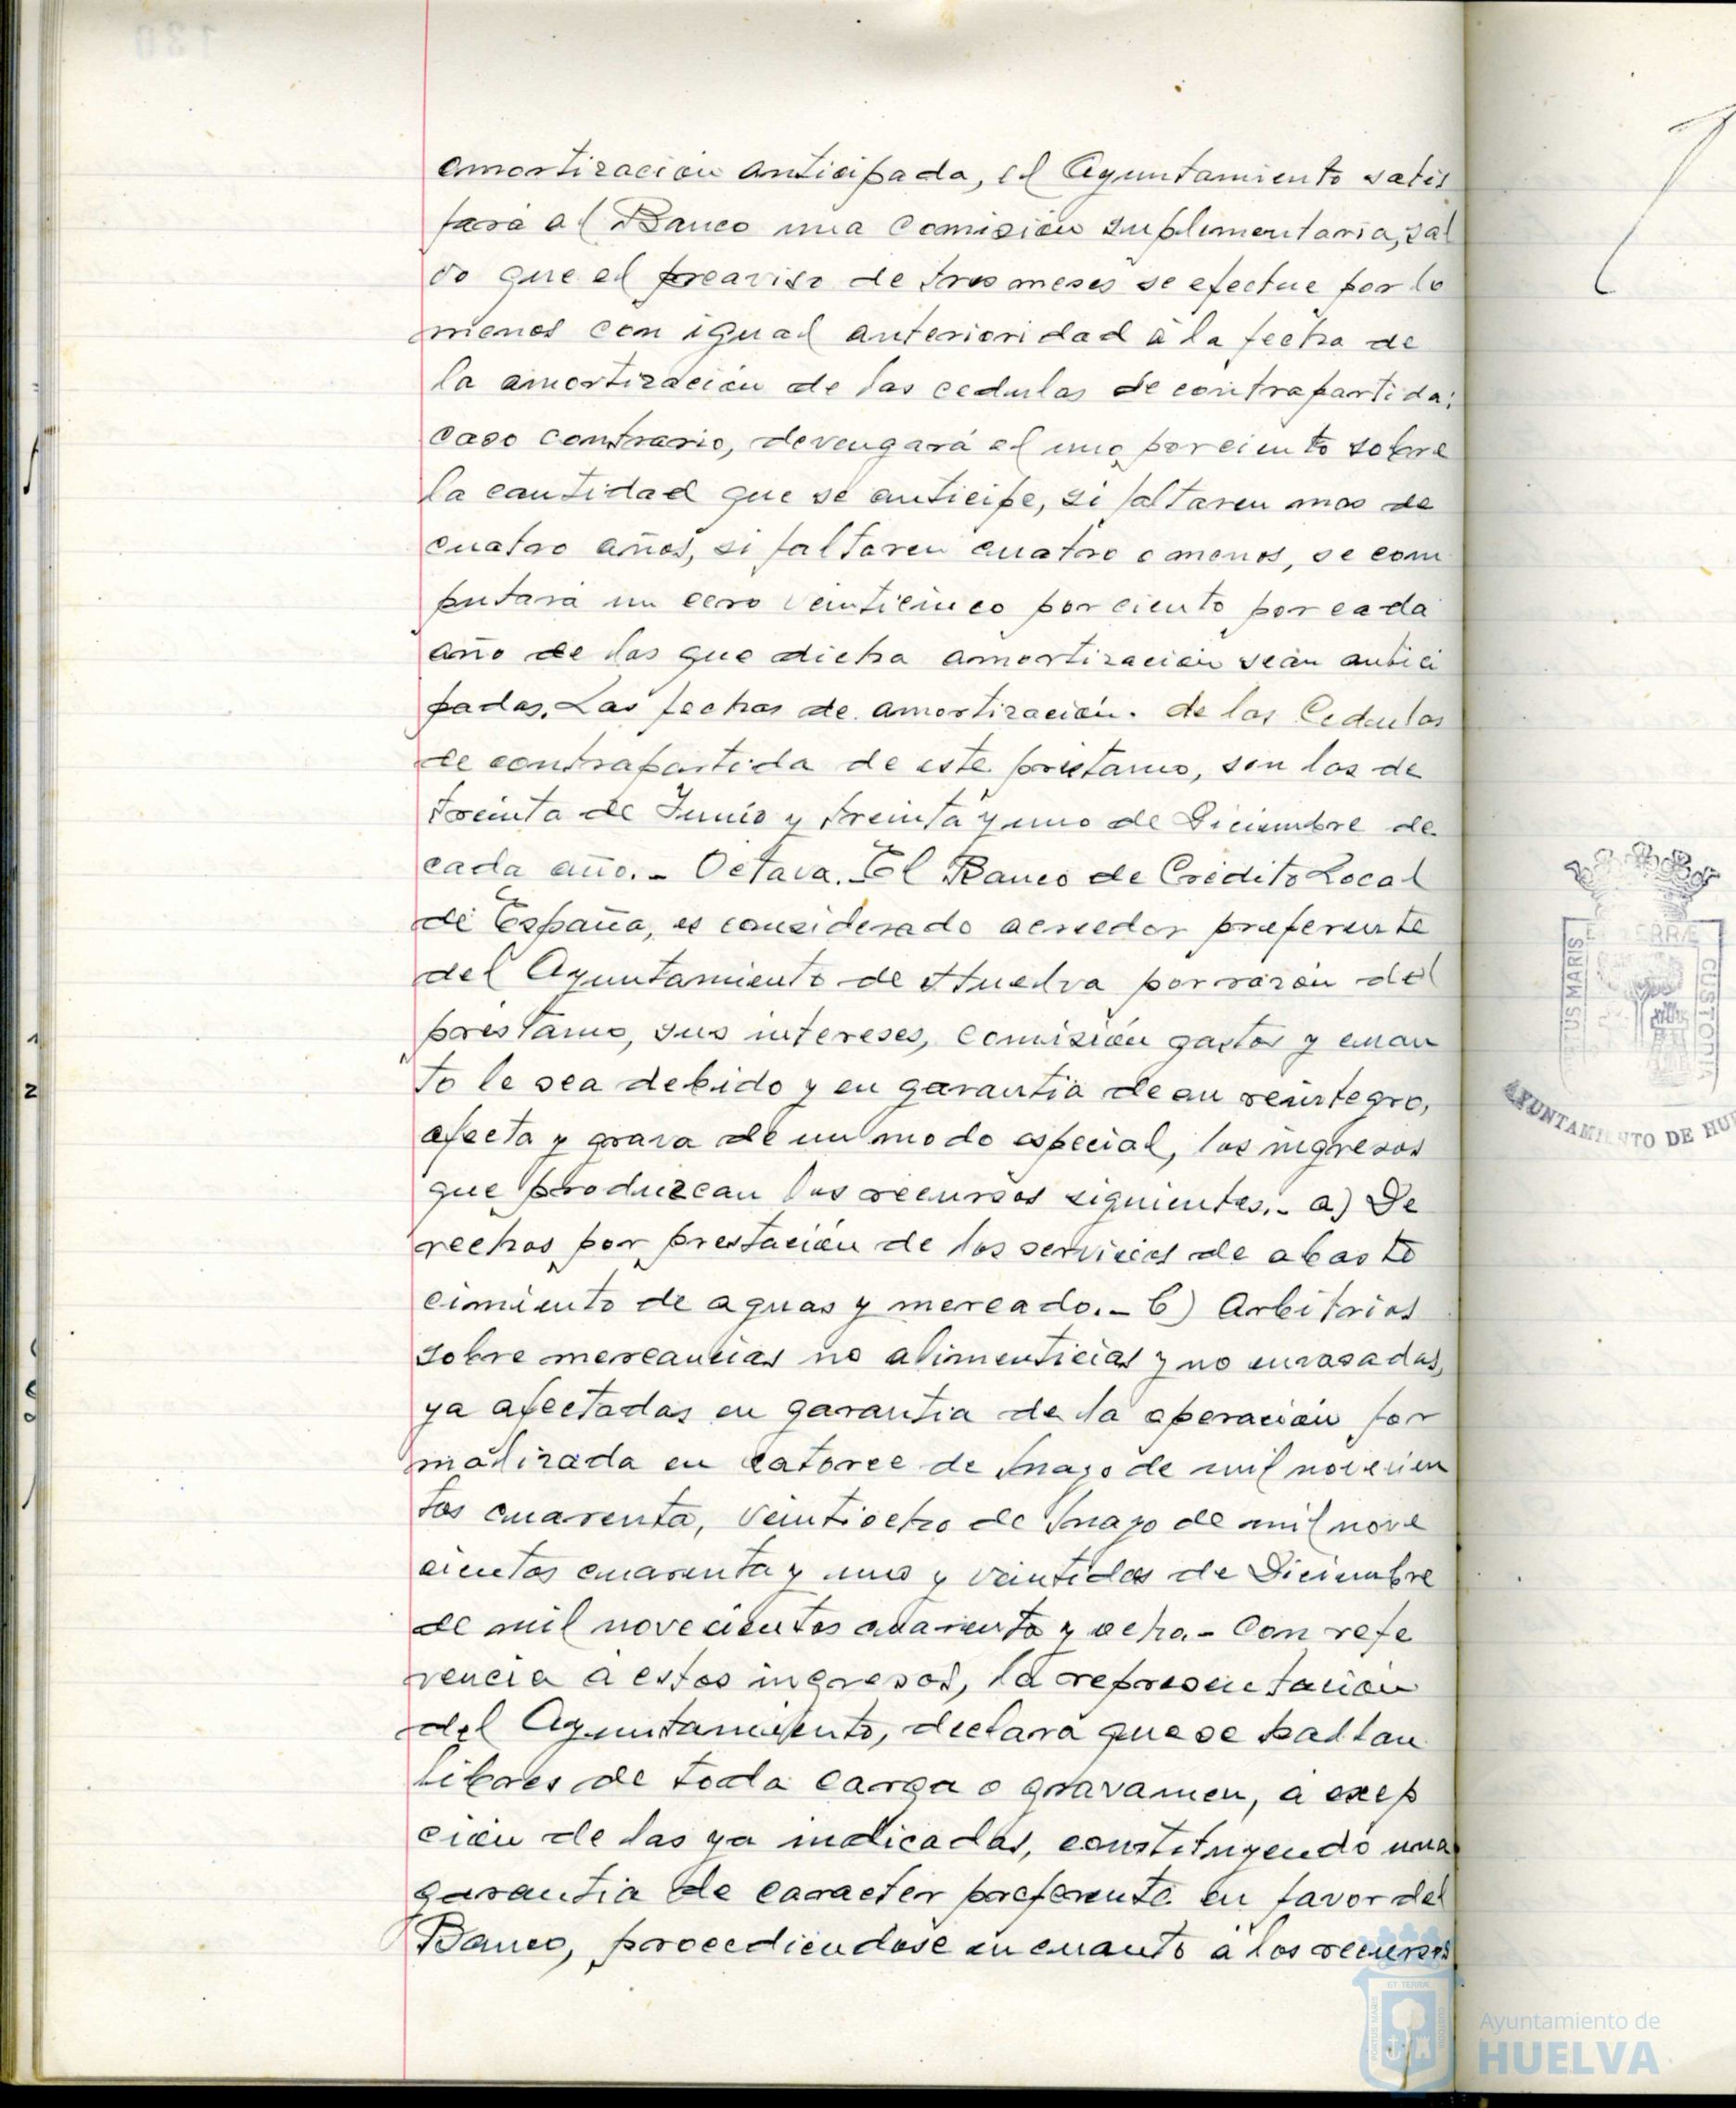 amortización anticipada, el Ayuntamiento satis
fará al Banco una Comisión suplementaria, sal
vo que el preaviso de tres meses se efectue por lo
menos con igual anterioridad á la fecha de
la amortización de las cedulas de contrapartida;
caso contrario, devengará el uno por ciento sobre
la cantidad que se anticipe, si faltaren mas de
cuatro años, si faltaren cuatro o menos, se com
putará un cero veinticinco por ciento por cada
año de los que dicha amortización sean antici
padas. Las fechas de amortización. de las Cedulas
de contrapartida de este prestamo, son las de
treinta de Junio y treinta y uno de Diciembre de
cada año. - Octava. El Banco de Crédito Local
de España, es considerado acreedor preferente
del Ayuntamiento de Huelva por razón del
prestamo, sus intereses, comisión gastos y cuan
to le sea debido y en garantia de su reintegro,
afecta y grava de un modo especial, los ingresos
que produzcan los recursos siguientes. - a) De
rechos por prestación de los servicios de abaste
cimiento de aguas y mercado. - b) Arbitrios
sobre mercancias no alimenticias y no envasadas,
ya afectadas en garantia de la operación for
malizada en catorce de Mayo de mil novecien
tos cuarenta, veintiocho de Mayo de mil nove
cientos cuarenta y uno y veintidos de Diciembre
de mil novecientos cuarenta y ocho. - Con refe
rencia a estos ingresos, la representación
del Ayuntamiento, declara que se hallan
libres de toda carga o gravamen, a exep
ción de las ya indicadas, constituyendo una
garantia de caracter preferente en favor del
Banco, procediendose en cuanto a los recursos
PORTUS MARIS
ET TERRÆ
CUSTODIA
AYUNTAMIENTO DE HU
Ayuntamiento de
HUELVA